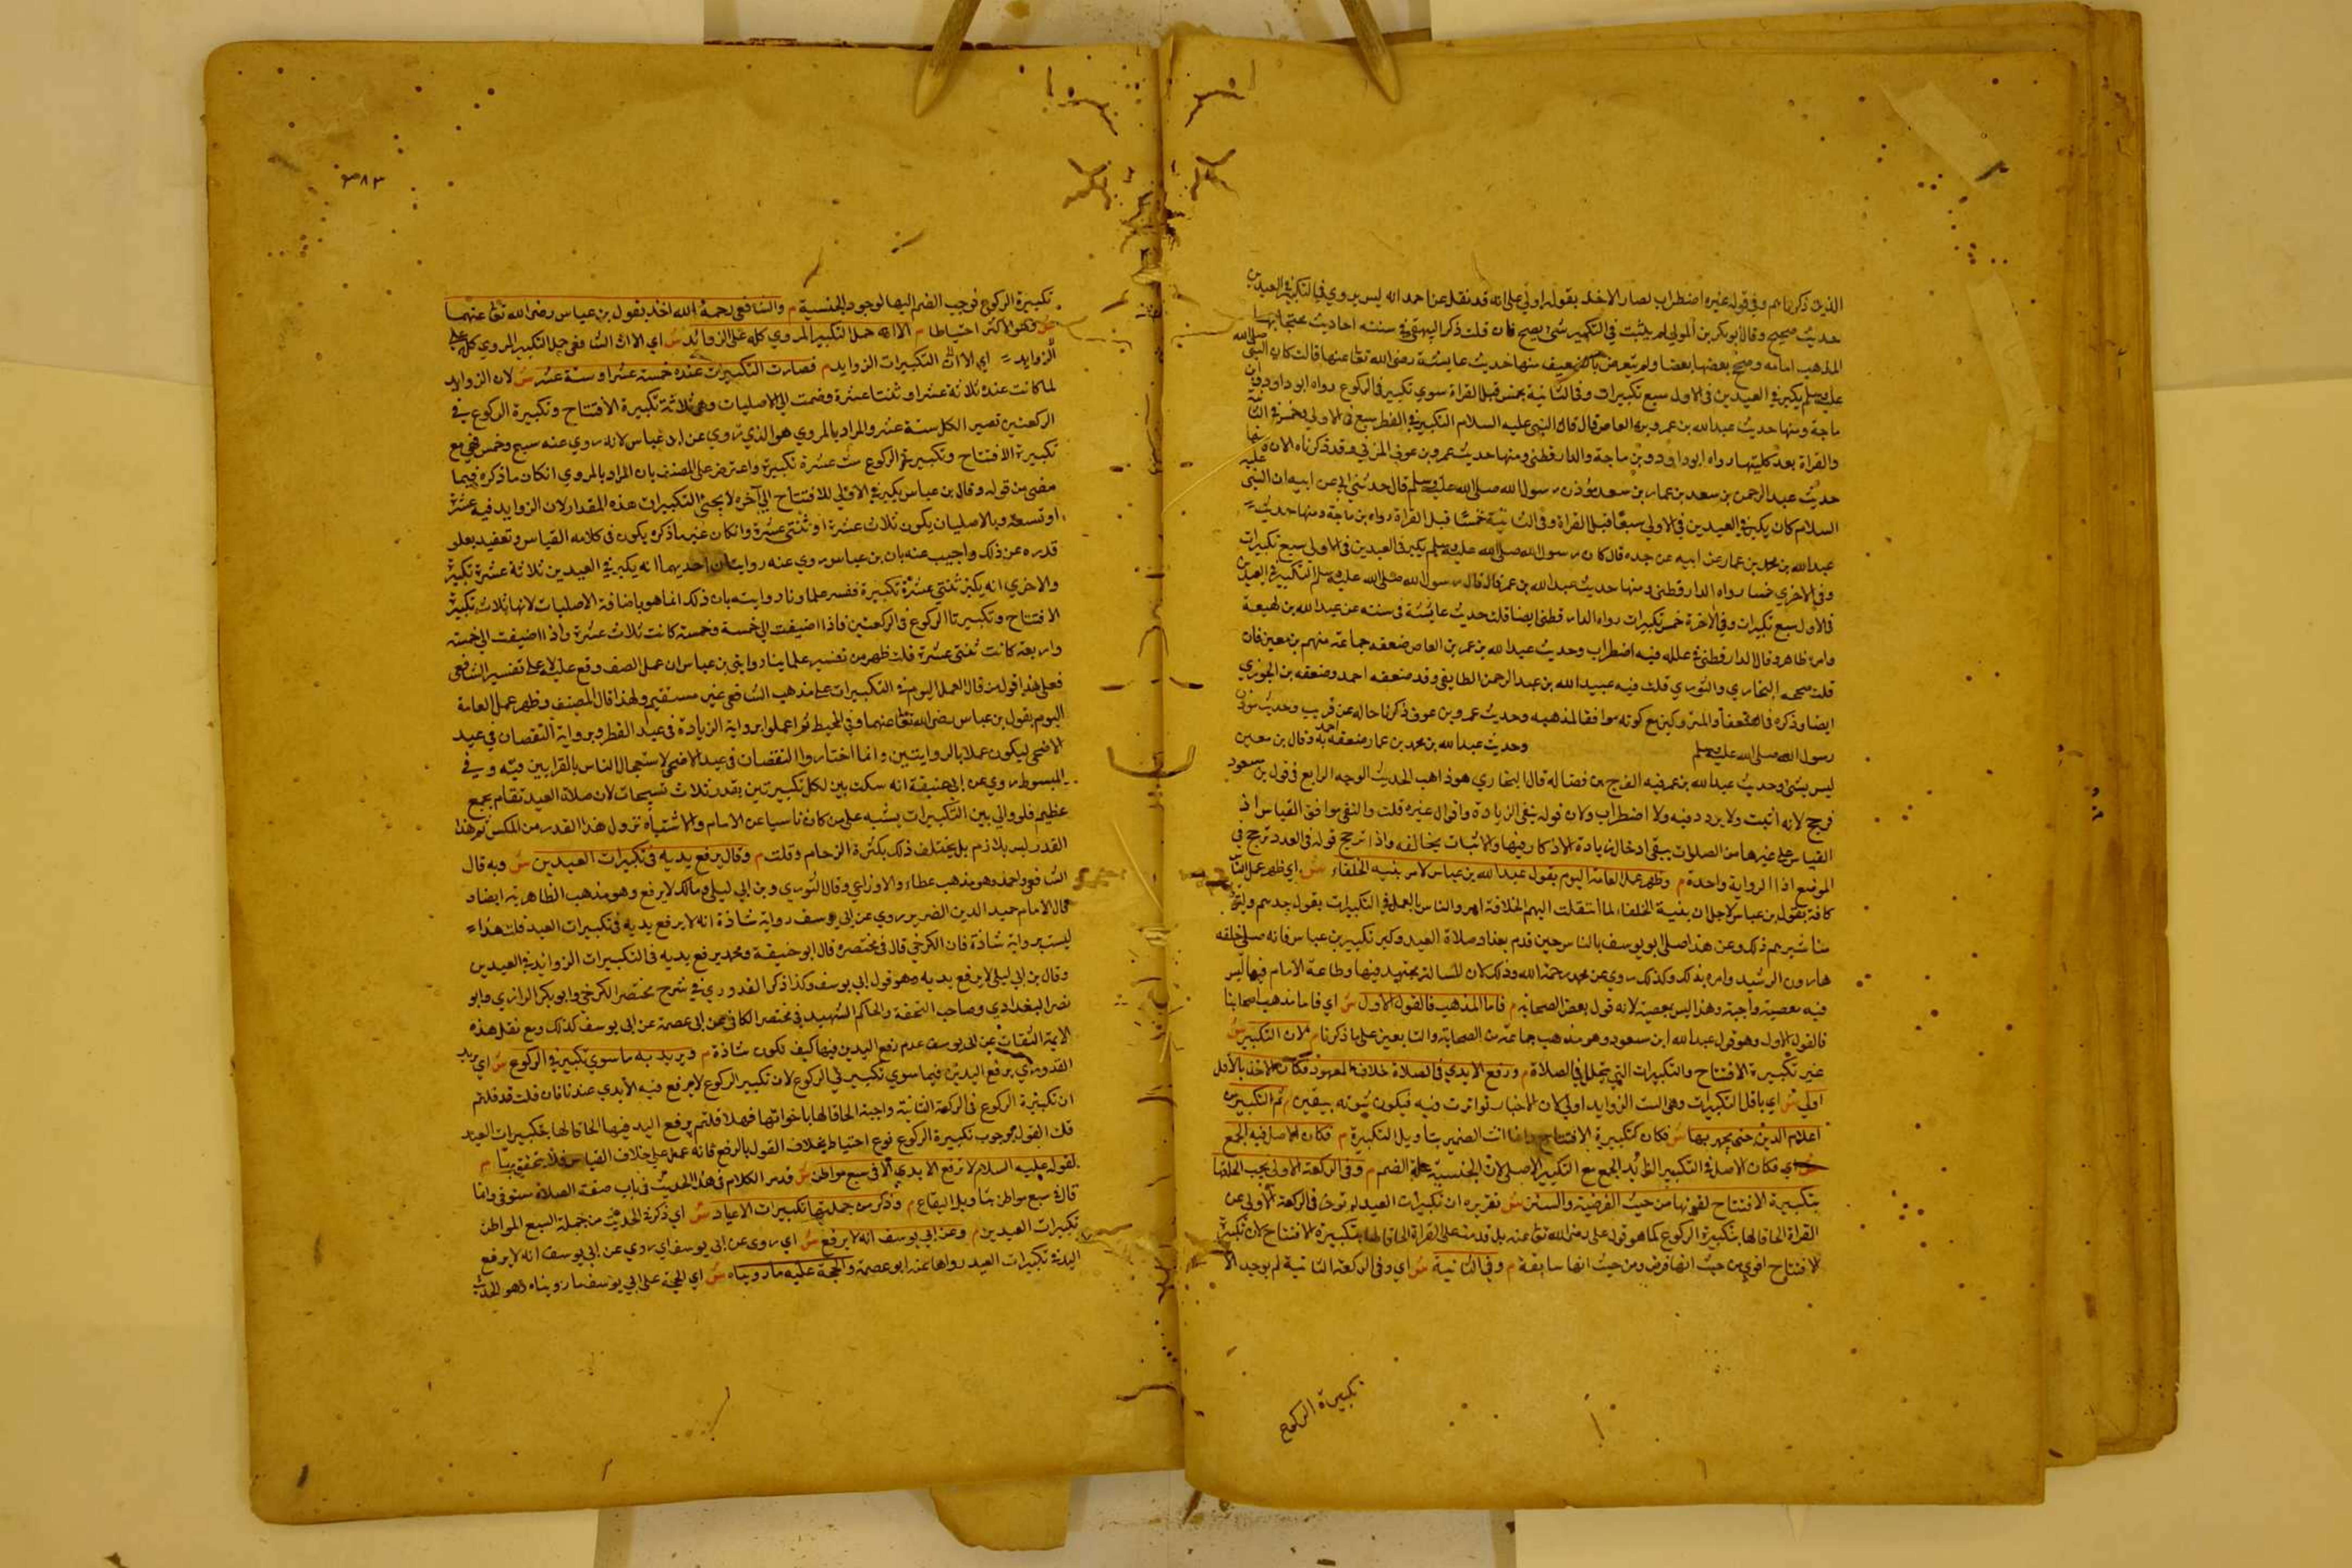 الذين ذكرناهم وفي قوله غيره اضطراب لصار الاخذ بقوله اولى على انه قد نقل عن احمد انه ليس يروي في التكبير في العيدين
حديث صحيح وقال ابو بكر بن المولي لم يثبت في التكبير شئ يصح فان قلت ذكر البيهقي في سننه احاديث محتجا بها
المذهب امامه وصحح بعضها بعضا ولم يتعرض بالضعيف منها حديث عايشة رضى الله تعا عنها قالت كان النبى صلى الله
عليه وسلم يكبر في العيدين في الاولى سبع تكبيرات وفي الثانية بخمس قبل القراة سوي تكبير في الركوع رواه ابو داود وابن
ماجة ومنها حديث عبد الله بن عمرو بن العاص قال قال النبى عليه السلام التكبير في الفطر سبع في الاولى وخمس في الثانية
والقراة بعد كليتهما رواه ابو داود وبن ماجة والدارقطنى ومنها حديث عمرو بن عوف المزني وقد ذكرناه الان
حديث عبد الرحمن بن سعد بن عمار بن سعد مؤذن رسول الله صلى الله عليه وسلم قال حدثني ابي عن ابيه ان النبى عليه
السلام كان يكبر في العيدين في الاولي سبعا قبل القراة وفي الثانية خمسا قبل القراة رواه بن ماجة ومنها حديث
عبد الله بن محمد بن عمار عن ابيه عن جده قال كان رسول الله صلى الله عليه وسلم يكبر في العيدين في الاولى سبع تكبيرات
وفي الاخري خمسا رواه الدارقطنى ومنها حديث عبد الله بن عمر قال قال رسول الله صلى الله عليه وسلم التكبير في العيدين
في الاولى سبع تكبيرات وفي الاخرة خمس تكبيرات رواه الدارقطنى ايضا قلت حديث عايشة في سنده عن عبد الله بن لهيعة
وامره ظاهر وقال الدارقطنى في علله فيه اضطراب وحديث عبد الله بن عمر بن العاص ضعفه جماعة منهم بن معين فان
قلت صححه البخاري والنووي قلت فيه عبيد الله بن عبد الرحمن الطايفي وقد ضعفه احمد وضعفه بن الجوزي
ايضا وذكره في الضعفا والمتروكين مع كونه موافقا لمذهبه وحديث عمرو بن عوف ذكرنا حاله عن قريب وحديث مؤذن
رسول الله صلى الله عليه وسلم وحديث عبد الله بن محمد بن عمار ضعفه احمد به وقال بن معين
ليس بشئ وحديث عبد الله بن عمر فيه الفرج بن فضالة قال البخاري هو ذاهب الحديث الوجه الرابع في قول بن مسعود
فرجح لانه اثبت ولا يردد فيه ولا اضطراب ولان قوله ينفي الزيادة واقوال غيره قلت والنفي موافق القياس اذ
القياس على غيرها من الصلوات يبقى ادخال زيادة الاذكار فيها والاثبات يخالفه واذا ترجح قوله في العدد ترجح في
الموضع اذ الرواية واحدة م وظهر عمل العامة اليوم بقول عبد الله بن عباس لامر بنيه الخلفاء ش اي ظهر عمل الناس
كافة بقول بن عباس لاجل ان بنيه الخلفاء لما انتقلت اليهم الخلافة امروا الناس بالعمل في التكبيرات بقول جدهم
مناشيرهم ذلك وعن هذا صلى ابو يوسف بالناس حين قدم بغداد صلاة العيد وكبر تكبير بن عباس فانه صلى خلفه
هارون الرشيد وامره بذلك وكذلك روي عن محمد رحمة الله وذلك لان المسالة مجتهد فيها وطاعة الامام فيها ليس
فيه معصية واجبة وهذا ليس بمعصية لانه قول بعض الصحابة م فاما المذهب فالقول الاول ش اي فاما مذهب اصحابنا
فالقول الاول وهو قول عبد الله ابن مسعود وهو مذهب جماعة من الصحابة والتابعين على ما ذكرنا م لان التكبير ش
غير تكبيرة الافتتاح والتكبيرات التي تتخلل في الصلاة م ورفع الايدي في الصلاة خلاف المعهود فكان الاخذ بالاقل
اولى ش اي باقل التكبيرات وهي الست الزوايد اولي لان الاخبار تواترت فيه فيكون ثبوته بيقين م ثم التكبير من
اعلام الدين حتى يجهر بها ش فكان كتكبيرة الافتتاح وانما انث الضمير بتاويل التكبيرة م فكان الاصل فيه الجمع
ش اي فكان الاصل في التكبير الزائد الجمع مع التكبير الاصلي لان الجنسية علة الضم م وفي الركعة الاولى يجب الحاقها
بتكبيرة الافتتاح لقوتها من حيث الفرضية والسبق ش تقريره ان تكبيرات العيد لم توخر في الركعة الاولي عن
القراة الحاقا لها بتكبيرة الركوع كما هو قول على رضى الله تعا عنه بل قدمت على القراة الحاقا لها بتكبيرة الافتتاح لان تكبيرة
الافتتاح اقوي من حيث انها فرض ومن حيث انها سابقة م وفي الثانية ش اي وفي الركعة الثانية لم يوجد الا
تكبيرة الركوع
٣٨٣
تكبيرة الركوع فوجب الضم اليها لوجود الجنسية م والشافعى رحمة الله اخذ بقول بن عباس رضى الله تعا عنهما
ش وهو الاكثر احتياطا م الا انه حمل التكبير المروي كله على الزوائد ش اي الا ان الشافعى حمل التكبير المروي كله على
الزوايد اي التكبيرات الزوايد م فصارت التكبيرات عنده خمسة عشر او ستة عشر ش لان الزوايد
لما كانت عنده ثلاثة عشر او ثنتا عشرة وضمت الى الاصليات وهى ثلاثة تكبيرة الافتتاح وتكبيرة الركوع في
الركعتين تصير الكل ستة عشر والمراد بالمروي هو الذي روي عن ابن عباس لانه روي عنه سبع وخمس فهى مع
تكبيرة الافتتاح وتكبيرة الركوع ست عشرة تكبيرة واعترض على المصنف بان المراد بالمروي ان كان ما ذكره فيما
مضى من قوله وقال بن عباس يكبر في الاولى للافتتاح الي آخره لا يجئ التكبيرات هذه المقدار لان الزوايد فيه عشرة
او تسعة وبالاصليات يكون ثلاث عشرة او ثنتى عشرة وان كان غير ما ذكره يكون في كلامه القياس وتعقيد بعلو
قدره عن ذلك واجيب عنه بان بن عباس روي عنه روايتان احديهما انه يكبر في العيدين ثلاثة عشرة تكبيرة
والاخري انه يكبر ثنتى عشرة تكبيرة ففسر علماونا روايته بان ذلك انما هو باضافة الاصليات لانها ثلاث تكبيرة
الافتتاح وتكبيرتا الركوع في الركعتين فاذا اضيفت الي خمسة وخمسة كانت ثلاث عشرة واذا اضيفت الي خمسة
واربعة كانت ثنتى عشرة قلت ظهر من تفسير علماينا روايتى بن عباس ان عمل الصف وقع عليه لا على تفسير الشافعى
فعلى هذا قول من قال العمل اليوم في التكبيرات على مذهب الشافعى غير مستقيم ولهذا قال المصنف وظهر عمل العامة
اليوم بقول بن عباس رضى الله تعا عنهما وفي المحيط ثم اعملوا برواية الزيادة في عيد الفطر وبرواية النقصان في عيد
الاضحى ليكون عملا بالروايتين وانما اختاروا النقصان في عيد الاضحى لاستعجال الناس بالقرابين فيه وفي
المبسوط روي عن ابى حنيفة انه سكت بين لكل تكبيرتين بقدر ثلاث تسبيحات لان صلاة العيد تقام بجمع
عظيم فلو والي بين التكبيرات يشتبه على من كان نائيا عن الامام والاشتباه تزول هذا القدر من المكث ثم هذا
القدر ليس بلازم بل يختلف ذلك بكثرة الزحام وقلته م وقال يرفع يديه في تكبيرات العيدين ش وبه قال
الشافعى واحمد وهو مذهب عطاء والاوزاعي وقال الثوري وبن ابى ليلى ومالك لا يرفع وهو مذهب الظاهرية ايضا و
قال الامام حميد الدين الضرير روي عن ابى يوسف رواية شاذة انه لا يرفع يديه في تكبيرات العيد قلت هذا
ليست برواية شاذة فان الكرخي قال في مختصره قال ابو حنيفة ومحمد يرفع يديه في التكبيرات الزوايد في العيدين
وقال بن ابى ليلى لا يرفع يديه وهو قول ابي يوسف وكذا ذكر القدوري في شرح مختصر الكرخي وابو بكر الرازي وابو
نصر البغدادي وصاحب التحفة والحاكم الشهيد في مختصر الكافي عن ابى عصمة عن ابى يوسف كذلك ومع نقل هذه
الايمة الثقات عن ابى يوسف عدم رفع اليدين فيها كيف تكون شاذة م ويريد به ما سوي تكبير في الركوع ش اي يريد
القدوري يرفع اليدين فيما سوي تكبير في الركوع لان تكبير الركوع لا يرفع فيه الايدي عندنا فان قلت قد قلتم
ان تكبيرة الركوع في الركعة الثانية واجبة الحاقا لها باخواتها فهلا قلتم يرفع اليد فيها الحاقا لها بتكبيرات العيد
قلت القول بوجوب تكبيرة الركوع نوع احتياط بخلاف القول بالرفع فانه عمل على خلاف القياس فلا يتحقق م
لقوله عليه السلام لا ترفع الايدي الا في سبع مواطن ش قد مر الكلام في هذا الحديث في باب صفة الصلاة مستوفى وانما
قال في سبع مواطن بتاويل البقاع م وذكر من جملتها تكبيرات الاعياد ش اي ذكر في الحديث من جملة السبع المواطن
تكبيرات العيدين م وعن ابى يوسف انه لا يرفع ش اي روي عن ابى يوسف اي روي عن ابى يوسف انه لا يرفع
اليد في تكبيرات العيد رواها عنه ابو عصمة والحجة عليه ما رويناه ش اي الحجة على ابي يوسف ما رويناه وهو الحديث